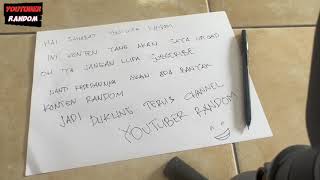 YOUTUBER
RANDOM
HAI SAHABAT YOUTUBER RANDOM
INI KONTEN YANG AKAN SAYA UPLOAD
OH YA JANGAN LUPA SUBSCRIBE
NANTI KEDEPANNYA AKAN ADA BANYAK
KONTEN RANDOM
JADI DUKUNG TERUS CHANNEL
YOUTUBER RANDOM